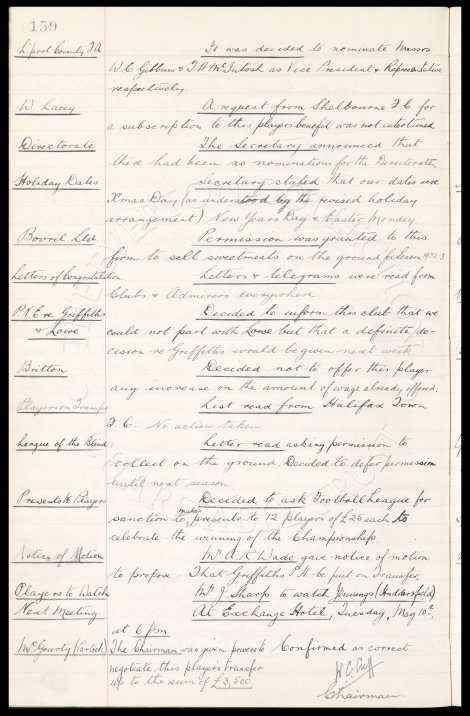 159
L'pool County F A It was decided to nominate Messrs
W. C. Gibbins & T. H. McIntosh as Vice President & Representative
respectively.
W Lacey A request from Shelbourne F C for
a subscription to this players benefit was not entertained
Directorate The Secretary announced that
there had been no nominations for the Directorate
Holiday Dates Secretary stated that our dates were
Xmas Day (as understood by the revised holiday
arrangement) New Years Day & Easter Monday.
Bovril Ltd. Permission was granted to this
firm to sell sweetmeats on the ground for season 1932-3
Letters of Congratulation Letters & telegrams were read from
Clubs & Admirers everywhere
P N E re Griffiths Decided to inform this club that we
& Lowe could not part with Lowe but that a definite de-
cision re Griffiths would be given next week
Britton Decided not to offer this player
any increase on the amount of wage already offered.
Players on Transfer List read from Halifax Town
F. C. No action taken
League of the Blind Letter read asking permission to
collect on the ground. Decided to defer permission
until next season
Presents to Players Decided to ask Football League for
sanction to make presents to 12 players of £25 each to
celebrate the winning of the Championship
Notice of Motion Mr. A. R. Wade gave notice of motion
to propose - That Griffiths P. H. be put on Transfer.
Players to Watch Mr. J Sharp to watch Jennings (Huddersfield)
Next Meeting At Exchange Hotel, Tuesday, May 10th,
at 6 pm.
McGourty (Partick) The Chairman was given powers to Confirmed as correct
negotiate this players transfer
up to the sum of £3,500
W. C. Cuff
Chairman.